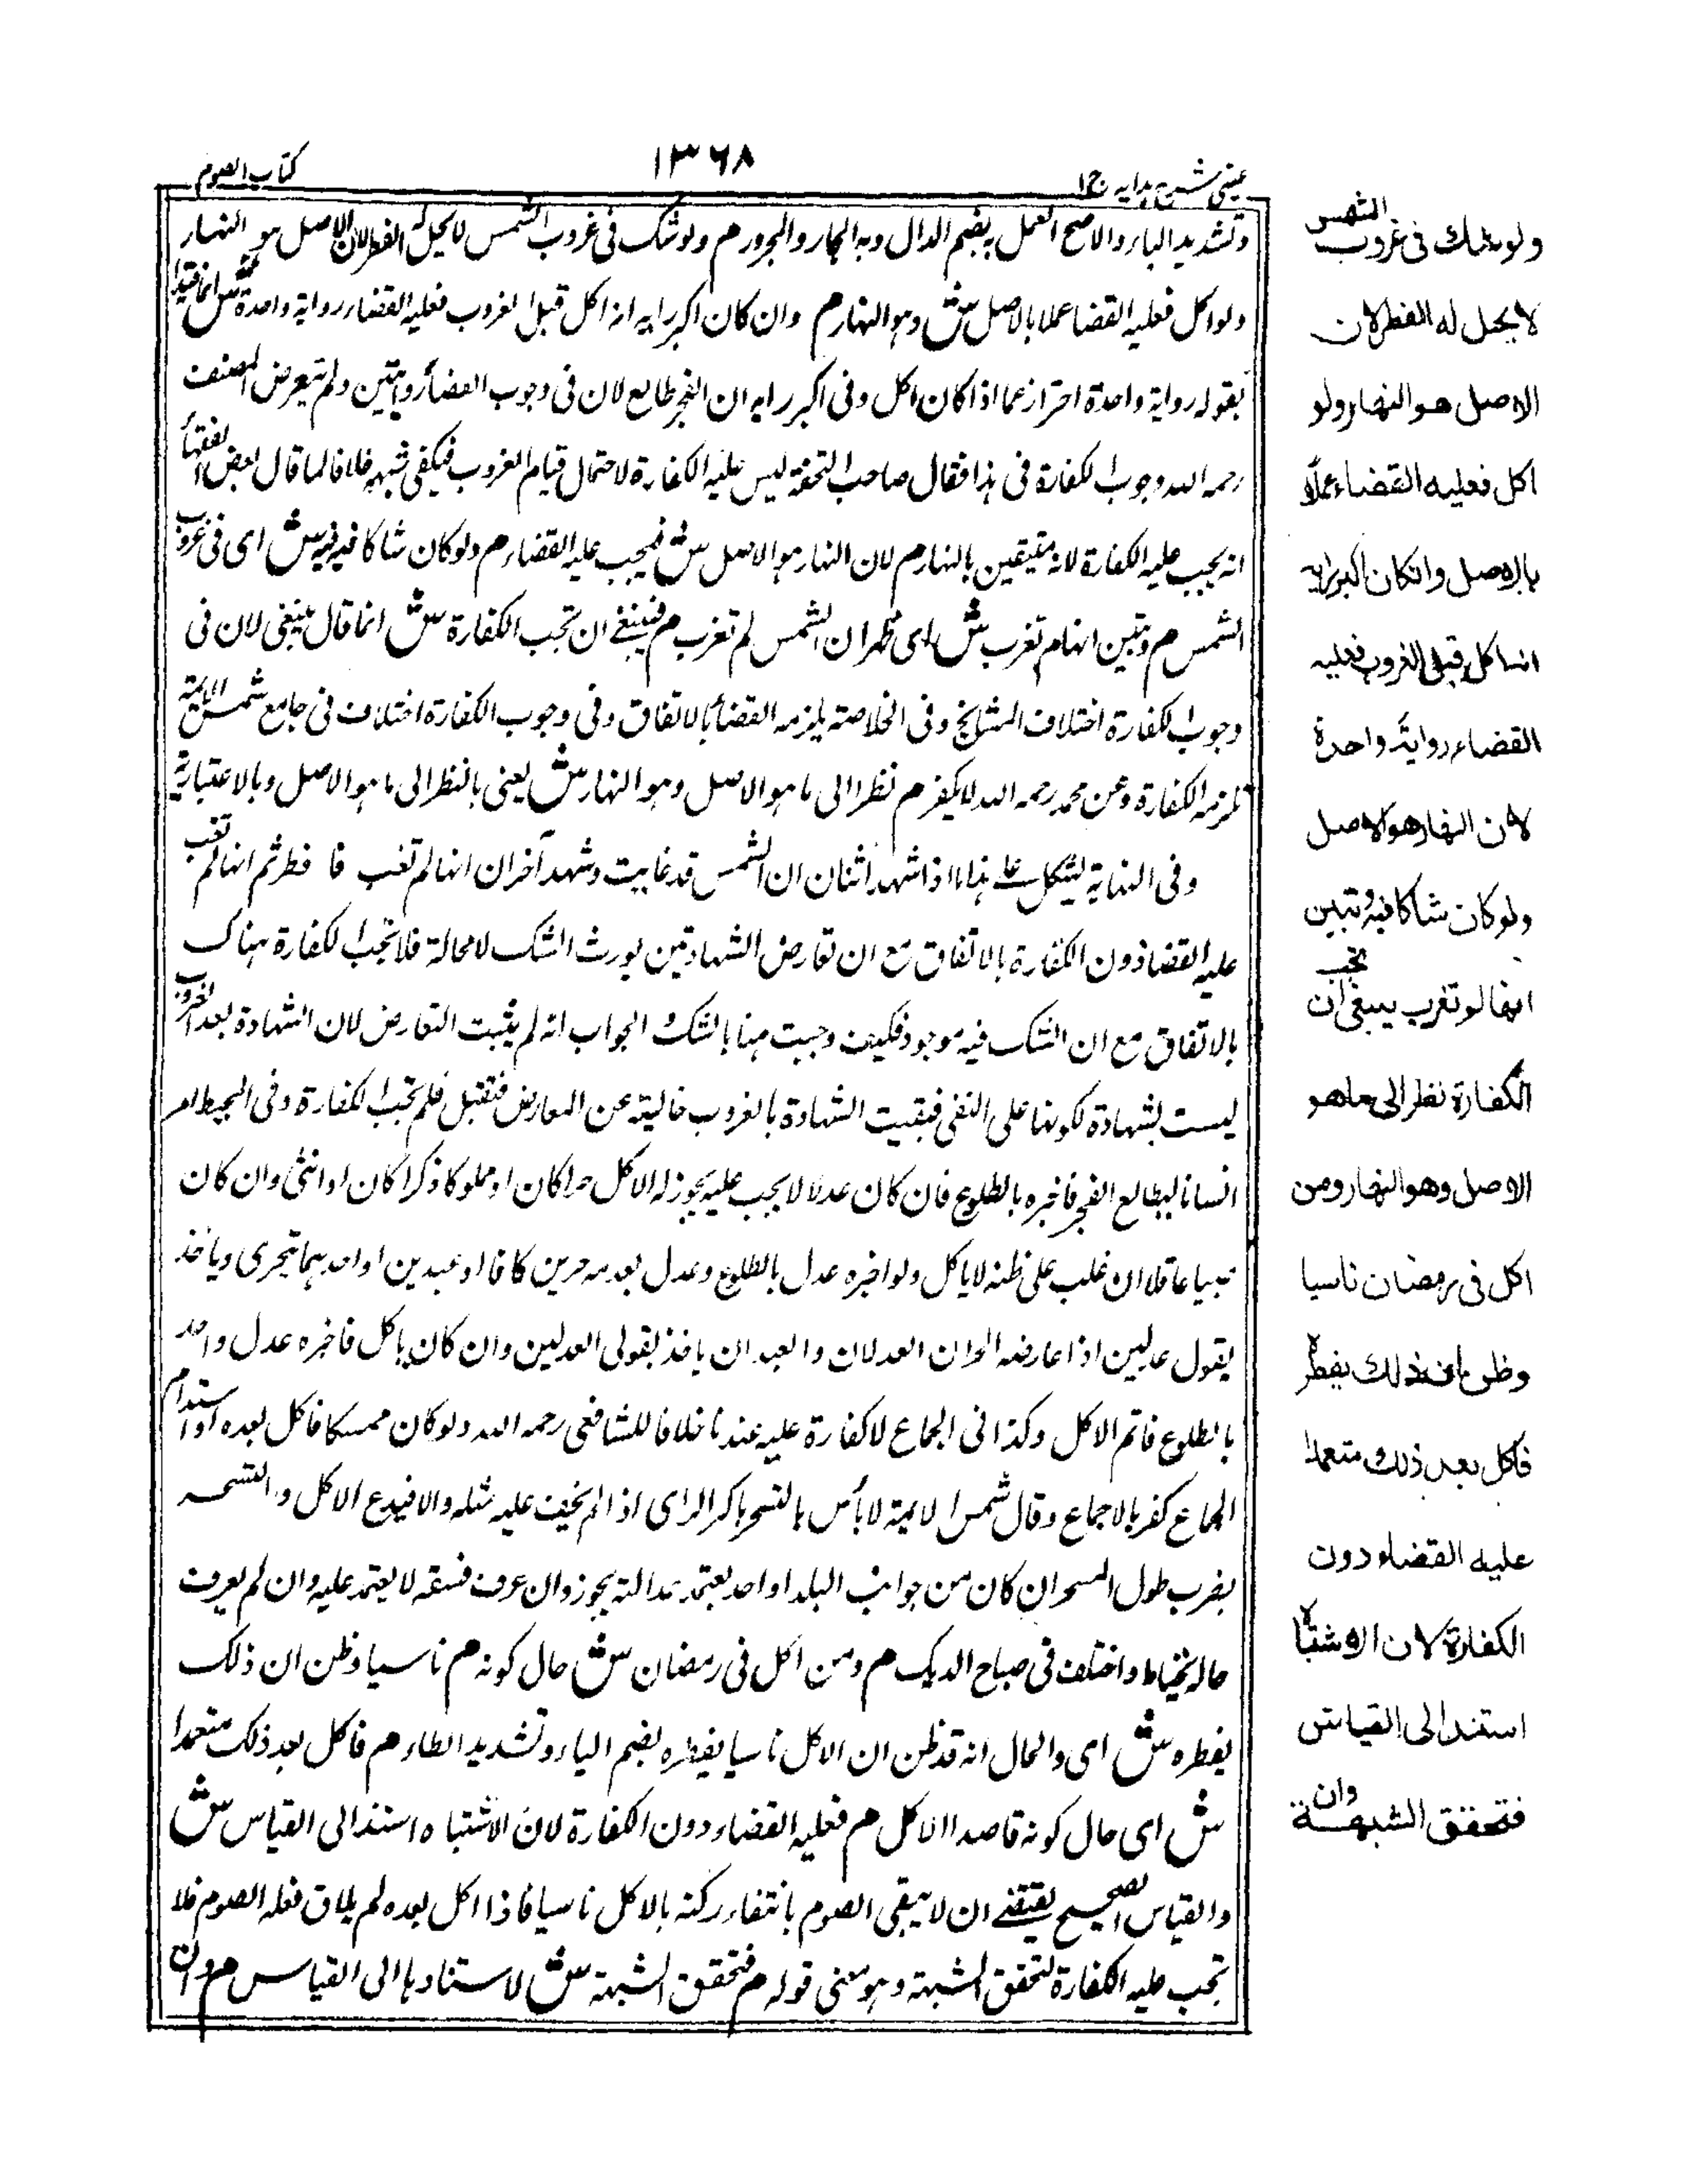 عینی شرح ہدایہ ج ۱
۱۳۶۸
کتاب الصوم
وتشديد الباء والاصح العمل به بضم الدال وبه الجار والمجرور م ولو شك فى غروب الشمس لا يحل له الفطر لان الاصل هو النهار
ولو اكل فعليه القضا عملا بالاصل ش وهو النهار م وان كان اكبر رايه انه اكل قبل الغروب فعليه القضاء رواية واحدة ش انما قيد
بقوله رواية واحدة احترازعما اذا كان اكل وفى اكبر رايه ان الفجر طالع لان فى وجوب القضاء روايتين ولم يتعرض المصنف
رحمه الله وجوب الكفارة فى هذا فقال صاحب التحفة ليس عليه الكفارة لاحتمال قيام الغروب فيكفى شبهة خلافا لما قال بعض الفقهاء
انه يجب عليه الكفارة لانه متيقين بالنهار م لان النهار هو الاصل ش فيجب عليه القضاء م ولو كان شاكا فيه ش اى فى غروب
الشمس م وتبين انها لم تغرب ش اى ظهر ان الشمس لم تغرب م فينبغى ان تجب الكفارة ش انما قال ينبغى لان فى
وجوب الكفارة اختلاف المشايخ وفى الخلاصة يلزمه القضاء بالاتفاق وفى وجوب الكفارة اختلاف فى جامع شمس الائمة
تلزمه الكفارة وعن محمد رحمه الله لا يكفر م نظرا الى ما هو الاصل وهو النهار ش يعنى بالنظر الى ما هو الاصل وبالاعتبار به
وفى النهاية يشكل على هذا ما اذا شهد اثنان ان الشمس قد غابت وشهد آخران انها لم تغب فا فطر ثم انها لم تغب
عليه القضا دون الكفارة بالاتفاق مع ان تعارض الشهادتين يورث الشك لا محالة فلا تجب الكفارة هناك
بالاتفاق مع ان الشك فيه موجود فكيف وجبت هنا بالشك الجواب انه لم يثبت التعارض لان الشهادة بعد الغروب
ليست بشهادة لكونها على النفى فبقيت الشهادة بالغروب خالية عن المعارض فتقبل فلم تجب الكفارة وفى المحيط امر
انسانا ليطالع الفجر فاخبره بالطلوع فان كان عدلا لا يجب عليه يجوز له الاكل حرا كان او مملوكا ذكرا كان او انثى وان كان
صبيا عاقلا ان غلب على ظنه لا ياكل ولو اخبره عدل بالطلوع وعدل بعدمه حرين كانا او عبدين او احدهما يتحرى وياخذ
بقول عدلين اذا عارضه الحران العدلان والعبدان ياخذ بقولى العدلين وان كان ياكل فاخبره عدل واحد
بالطلوع فاتم الاكل وكذا فى الجماع لا كفارة عليه عندنا خلافا للشافعى رحمه الله ولو كان ممسكا فاكل بعده او استدام
الجماع كفر بالاجماع وقال شمس الائمة لا بأس بالتسحر باكبر الراى اذا لم يخف عليه مثله والا فيدع الاكل والتسحر
بضرب طبل السحر ان كان من جوانب البلد او احد يعتمد عدالته يجوز وان عرف فسقه لا يعتمد عليه وان لم يعرف
حاله يحتاط واختلف فى صياح الديك م ومن اكل فى رمضان ش حال كونه م ناسيا وظن ان ذلك
يفطره ش اى والحال انه قد ظن ان الاكل ناسيا يفطره بضم الياء وتشديد الطاء م فاكل بعد ذلك متعمدا
ش اى حال كونه قاصدا الاكل م فعليه القضاء دون الكفارة لان الاشتباه استند الى القياس ش
والقياس الصحيح يقتضى ان لا يبقى الصوم بانتفاء ركنه بالاكل ناسيا فاذا اكل بعده لم يلاق فعله الصوم فلا
تجب عليه الكفارة لتحقق الشبهة وهو معنى قوله م فتحقق الشبهة ش لاستنادها الى القياس م وان
ولو شك فى غروب الشمس
لا يحل له الفطر لان
الاصل هو النهار ولو
اكل فعليه القضاء عملا
بالاصل وان كان اكبر رايه
انه اكل قبل الغروب فعليه
القضاء رواية واحدة
لان النهار هو الاصل
ولو كان شاكا فيه وتبين
انها لم تغرب ينبغى ان تجب
الكفارة نظرا الى ما هو
الاصل وهو النهار ومن
اكل فى رمضان ناسيا
وظن ان ذلك يفطره
فاكل بعد ذلك متعمدا
عليه القضاء دون
الكفارة لان الاشتباه
استند الى القياس
فتحقق الشبهة وان